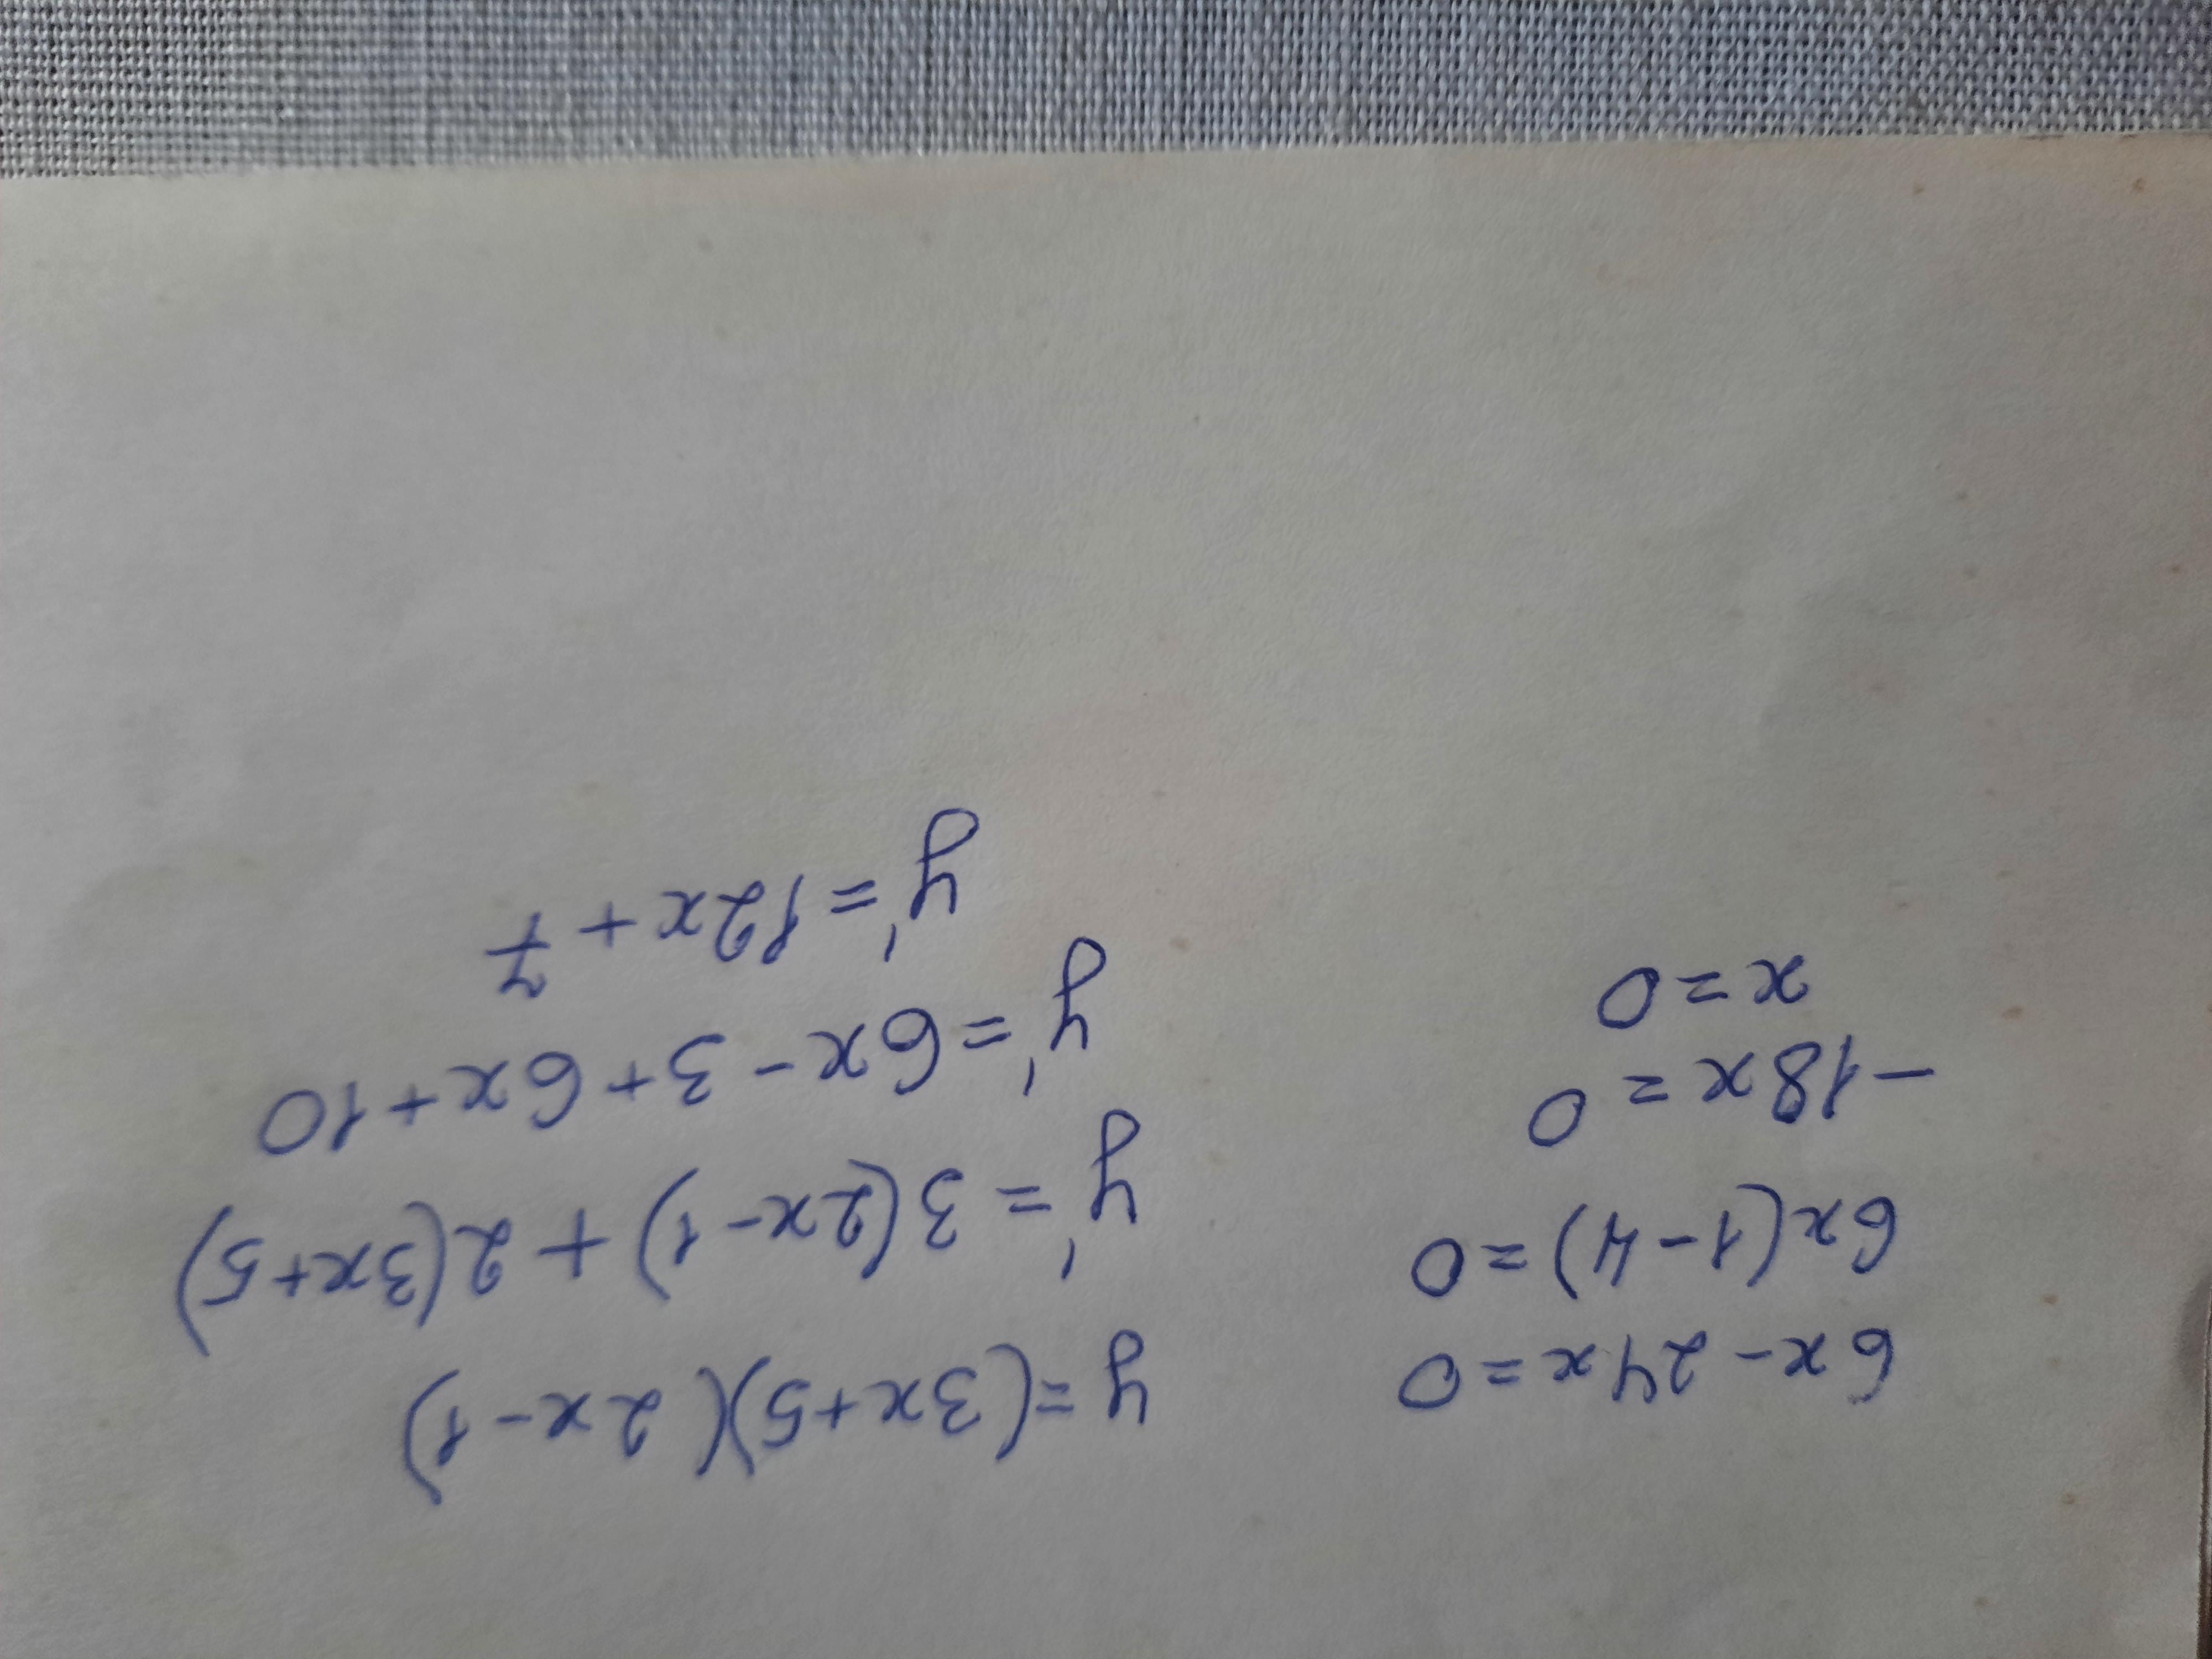 6x-24x=0
6x(1-4)=0
-18x=0
x=0
y=(3x+5)(2x-1)
y'=3(2x-1)+2(3x+5)
y'=6x-3+6x+10
y'=12x+7